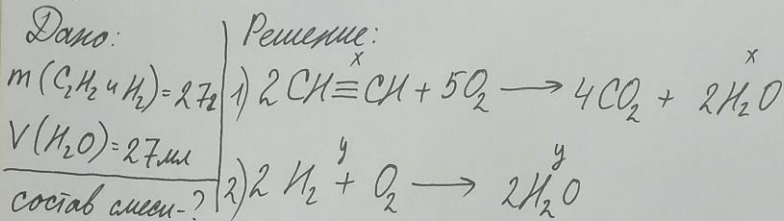 Дано:
m(C₂H₂ и H₂)=27г
V(H₂O)=27мл
состав смеси-?
Решение:
x x
1) 2CH≡CH + 5O₂ → 4CO₂ + 2H₂O
y y
2) 2H₂ + O₂ → 2H₂O